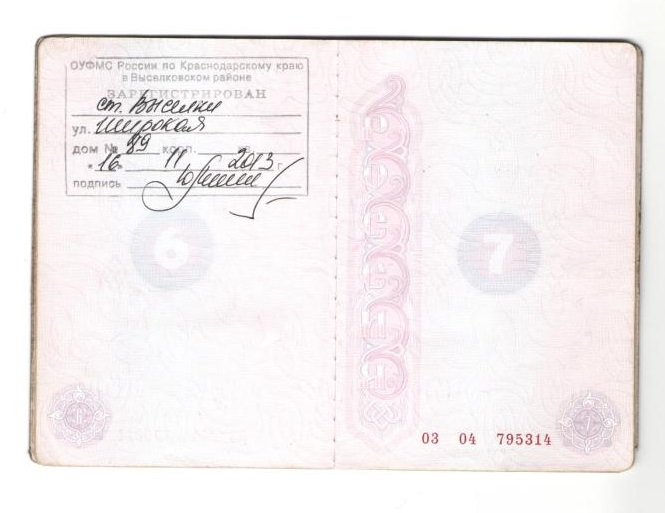 ОУФМС России по Краснодарскому краю
в Выселковском районе
ЗАРЕГИСТРИРОВАН
ст. Выселки
ул. Широкая
дом № 89 корп. кв.
"16" 11 2013 г.
подпись
6
7
03 04 795314